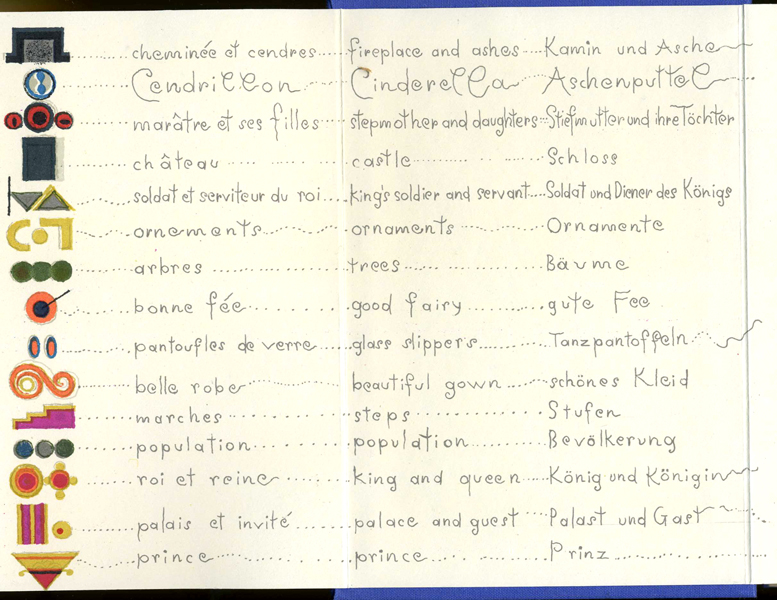 cheminée et cendres fireplace and ashes Kamin und Asche
Cendrillon Cinderella Aschenputtel
marâtre et ses filles stepmother and daughters Stiefmutter und ihre Töchter
château castle Schloss
soldat et serviteur du roi king's soldier and servant Soldat und Diener des Königs
ornements ornaments Ornamente
arbres trees Bäume
bonne fée good fairy gute Fee
pantoufles de verre glass slippers Tanzpantoffeln
belle robe beautiful gown schönes Kleid
marches steps Stufen
population population Bevölkerung
roi et reine king and queen König und Königin
palais et invité palace and guest Palast und Gast
prince prince Prinz